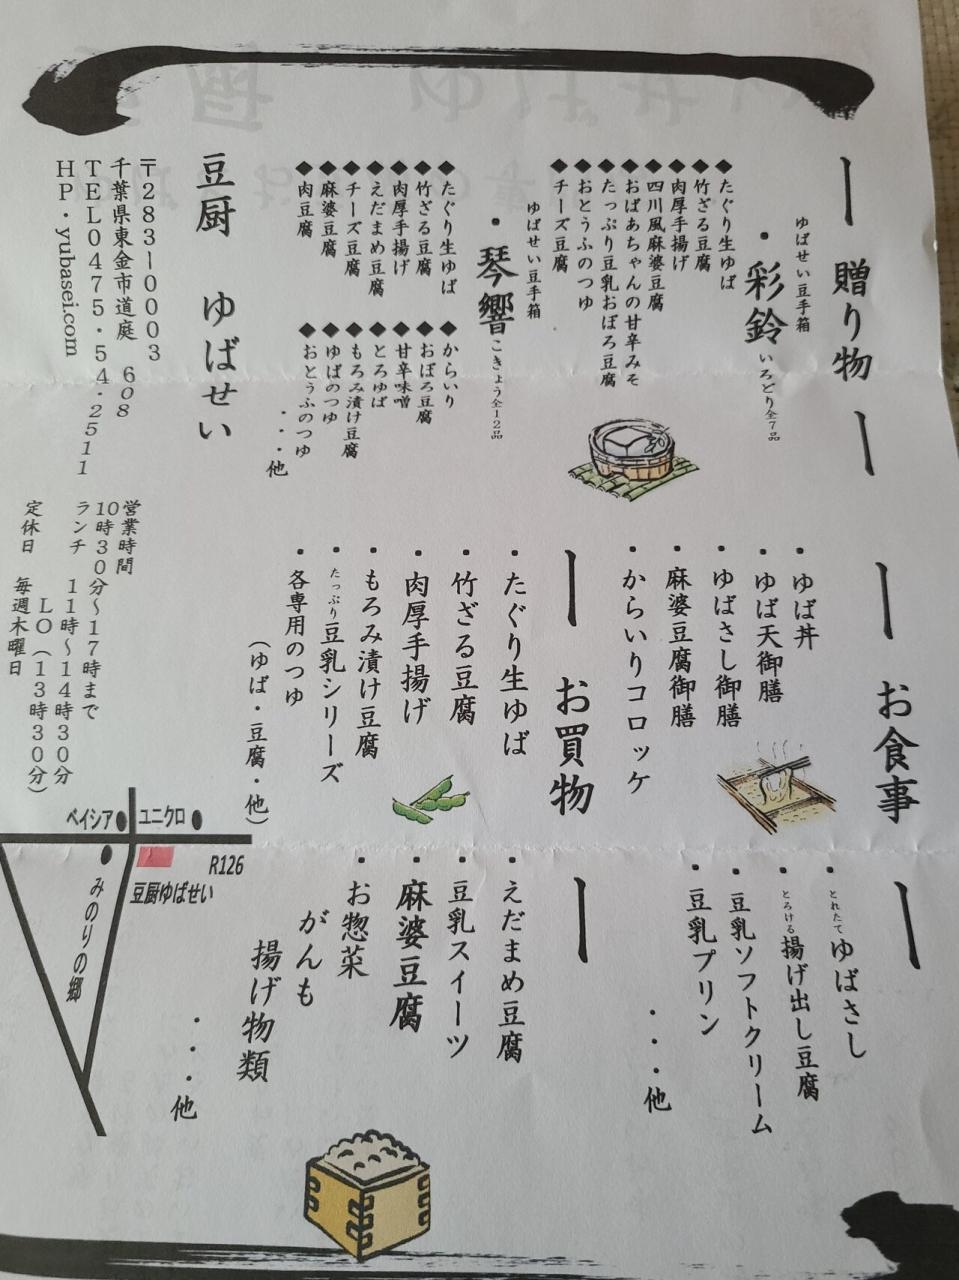 贈り物
ゆばせい豆手箱
・彩鈴 いろどり全7品
◆たぐり生ゆば
◆竹ざる豆腐
◆肉厚手揚げ
◆四川風麻婆豆腐
◆おばあちゃんの甘辛みそ
◆たっぷり豆乳おぼろ豆腐
◆おとうふのつゆ
◆チーズ豆腐
ゆばせい豆手箱
・琴響 こきょう全12品
◆たぐり生ゆば
◆竹ざる豆腐
◆肉厚手揚げ
◆えだまめ豆腐
◆チーズ豆腐
◆麻婆豆腐
◆肉豆腐
◆からいり
◆おぼろ豆腐
◆甘辛味噌
◆とろゆば
◆もろみ漬け豆腐
◆ゆばのつゆ
◆おとうふのつゆ
・・・他
お食事
・ゆば丼
・ゆば天御膳
・ゆばさし御膳
・麻婆豆腐御膳
・からいりコロッケ
・とれたてゆばさし
・とろける揚げ出し豆腐
・豆乳ソフトクリーム
・豆乳プリン
・・・他
お買物
・たぐり生ゆば
・竹ざる豆腐
・肉厚手揚げ
・もろみ漬け豆腐
・たっぷり豆乳シリーズ
・各専用のつゆ
（ゆば・豆腐・他）
・えだまめ豆腐
・豆乳スイーツ
・麻婆豆腐
・お惣菜
がんも
揚げ物類
・・・他
豆厨 ゆばせい
〒283-0003
千葉県東金市道庭 608
TEL0475・54・2511
HP・yubasei.com
営業時間
10時30分～17時まで
ランチ 11時～14時30分
LO（13時30分）
定休日 毎週木曜日
ベイシア
ユニクロ
R126
豆厨ゆばせい
みのりの郷